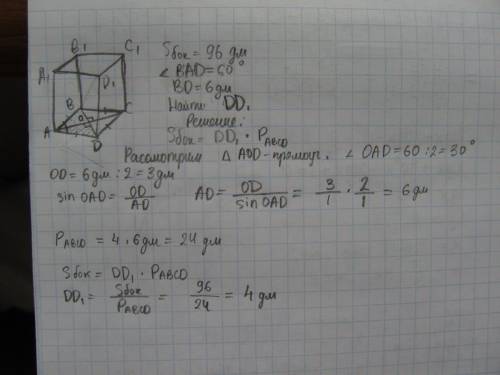 B₁ C₁
A₁ D₁
B C
O
A D
Sбок = 96 дм
∠ BAD = 60°
BD = 6 дм
Найти DD₁
Решение:
Sбок = DD₁ · PABCD
Рассмотрим △ AOD – прямоуг. ∠ OAD = 60 : 2 = 30°
OD = 6 дм : 2 = 3 дм
sin OAD = OD/AD AD = OD/sin OAD = 3/1 · 2/1 = 6 дм
PABCD = 4 · 6 дм = 24 дм
Sбок = DD₁ · PABCD
DD₁ = Sбок/PABCD = 96/24 = 4 дм